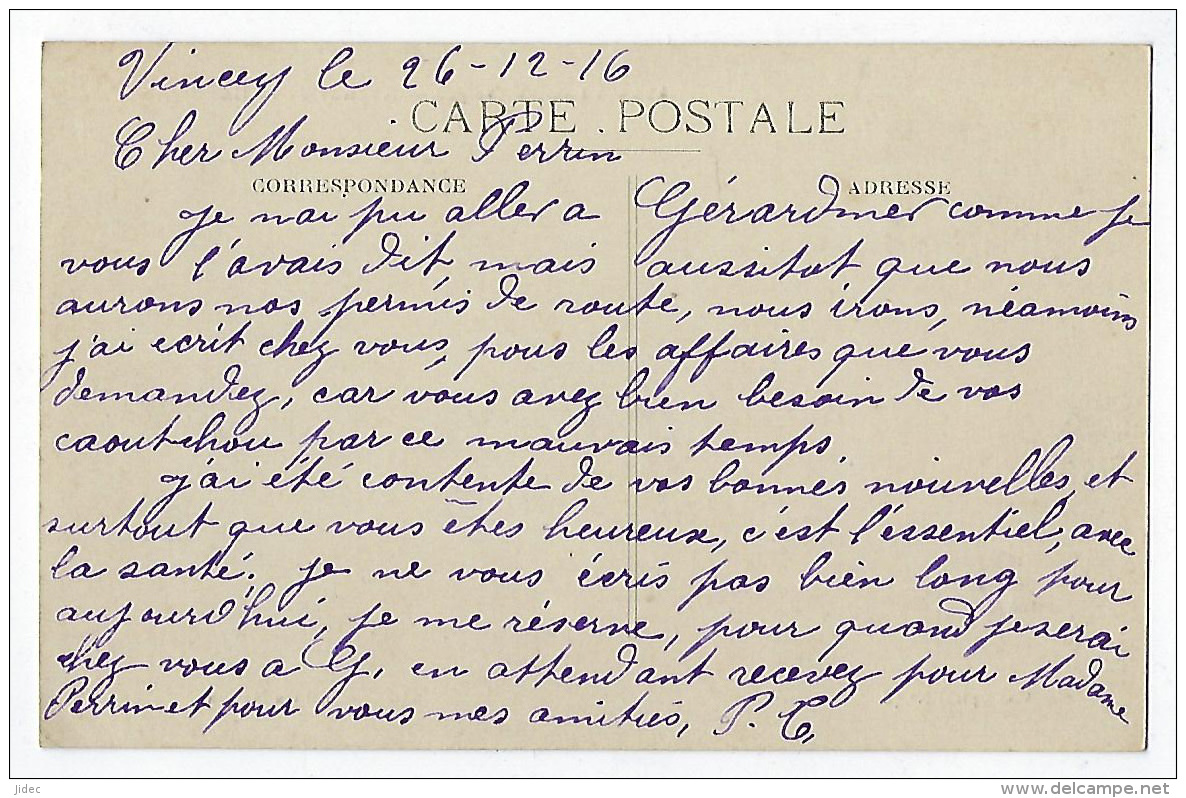 Vincey le 26-12-16
CARTE POSTALE
Cher Monsieur Perrin
CORRESPONDANCE ADRESSE
Je nai pu aller a Gérardmer comme je
vous l'avais dit, mais aussitot que nous
aurons nos permis de route, nous irons, néamoins
j'ai ecrit chez vous, pous les affaires que vous
demandez, car vous avez bien besoin de vos
caoutchou par ce mauvais temps.
j'ai été contente de vos bonnes nouvelles, et
surtout que vous êtes heureux, c'est l'éssentiel, avec
la santé. je ne vous écris pas bien long pour
aujourd'hui, je me réserve, pour quand je serai
chez vous a G, en attendant recevez pour Madame
Perrin et pour vous mes amitiés, P. C,
jidec
www.delcampe.net